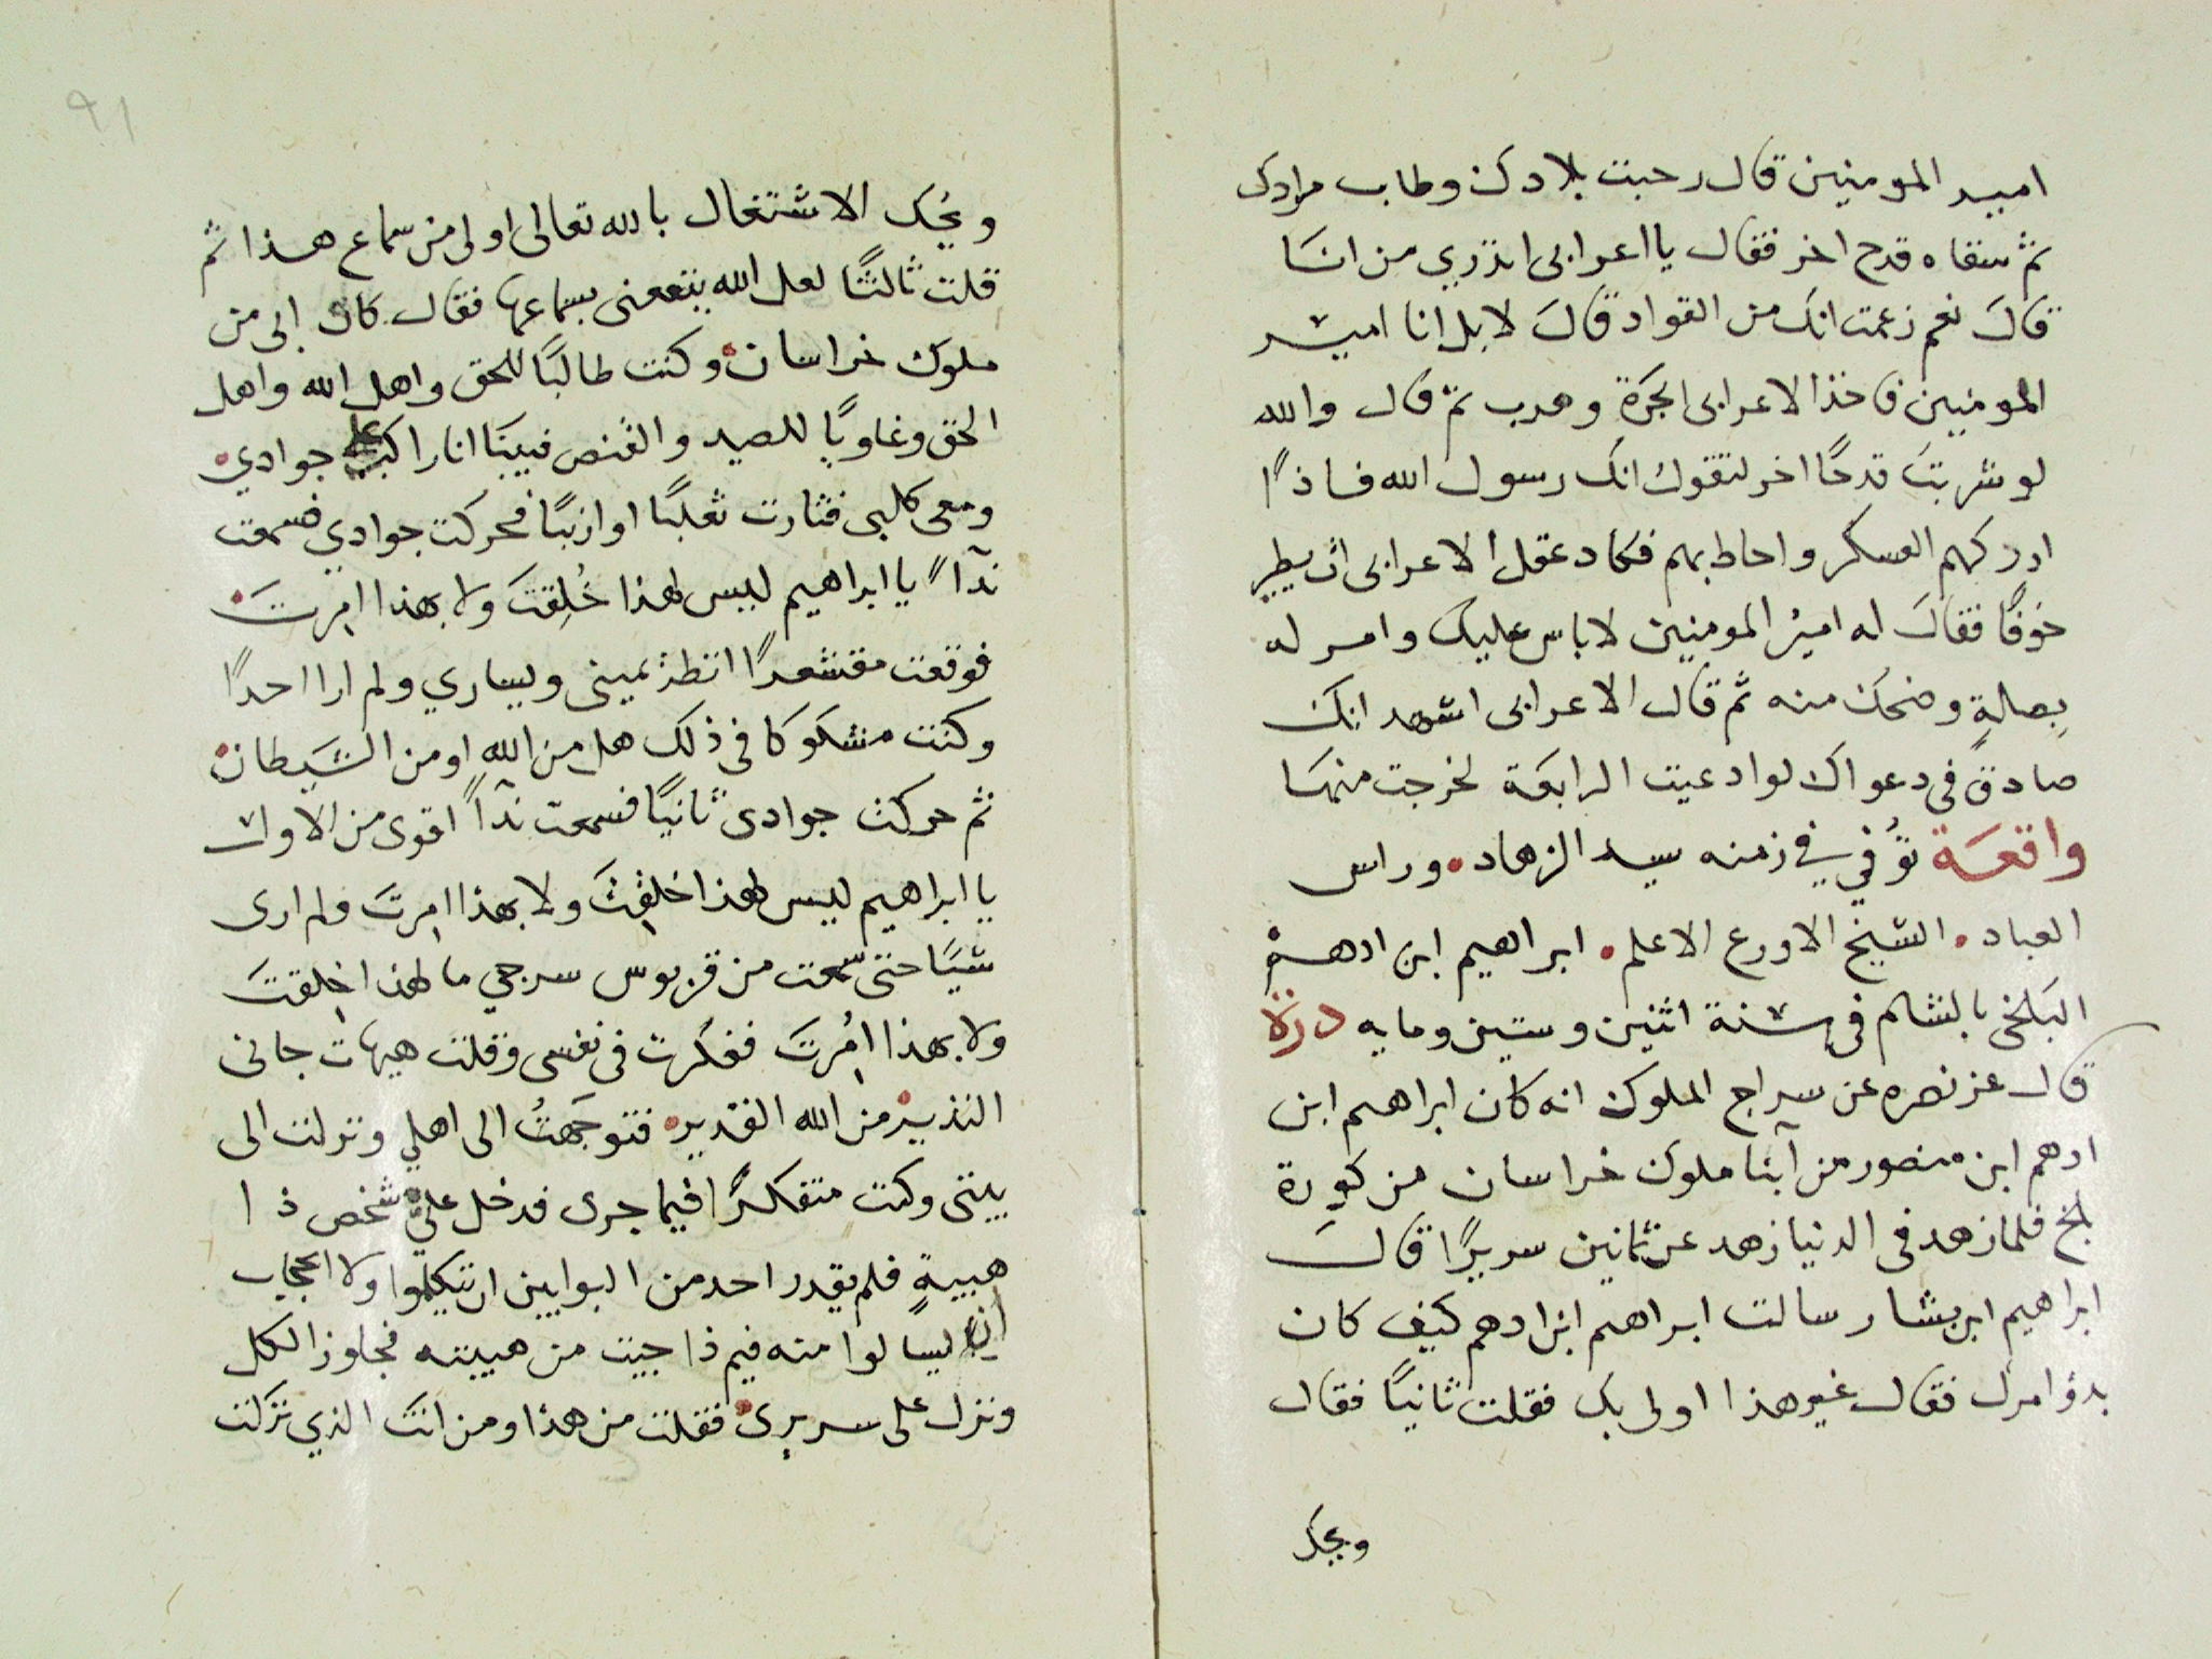 امير المومنين قال رحبت بلادك وطاب مرادك
ثم سقاه قدح اخر فقال يا اعرابى اتدري من انا
قال نعم زعمت انك من القواد قال لا بل انا امير
المومنين فاخذ الاعرابى الجرة وهرب ثم قال والله
لو شربت قدحًا اخر لتقول انك رسول الله فاذًا
ادركهم العسكر واحاط بهم فكاد عقل الاعرابى ان يطير
خوفًا فقال له امير المومنين لا باس عليك وامر له
بصلةٍ وضحك منه ثم قال الاعرابى اشهد انك
صادق فى دعواك لو ادعيت الرابعة لخرجت منها
واقعة توُفي في زمنه سيد الزهاد • وراس
العباد • الشيخ الاورع الاعلم • ابراهيم ابن ادهم
البلخى بالشام فى سنة اثنين وستين ومايه درة
قال عز نصره عن سراج الملوك انه كان ابراهيم ابن
ادهم ابن منصور من ابنآ ملوك خراسان من كورة
بلخ فلما زهد فى الدنيا زهد عن ثمانين سريرًا قال
ابراهيم ابن بشار سالت ابراهيم ابن ادهم كيف كان
بدؤ امرك فقال غير هذا اولى بك فقلت ثانيًا فقال
ويحك
٩١
ويُحك الاشتغال بالله تعالى اولى من سماع هذا ثم
قلت ثالثًا لعل الله ينفعنى بسماعها فقال كان ابى من
ملوك خراسان • وكنت طالبًا للحق واهل الله واهل
الحق وغاويًا للصيد والقنص فبينا انا راكب على جوادي •
ومعى كلبى فثارت ثعلبًا او ارنبًا فحركت جوادي فسمعت
ندآً يا ابراهيم ليس لهذا خُلِقتَ ولا بهذا امِرتَ •
فوقعت مقشعرًا انظر يمينى ويسارى ولم ارا احدًا
وكنت مشكوكا فى ذلك هل من الله او من الشيطان •
ثم حركت جوادى ثانيًا فسمعت ندآً اقوى من الاول
يا ابراهيم ليس لهذا خلقِت ولا بهذا امِرتَ ولم ارى
شيًا حتى سمعت من قربوس سرجي ما لهذا خلِقتَ
ولا بهذا امُرِتَ ففكرت فى نفسى وقلت هيهات جانى
النذير • من الله القدير • فتوجهتُ الى اهلي ونزلت الى
بيتى وكنت متفكرًا فيما جرى فدخل علي • شخص ذا
هيبةٍ فلم يقدر احد من البوابين ان يتكلموا ولا الحجاب
ان يسالوا منه فيم ذا جيت من هيبته فجاوز الكل
ونزل على سريرى • فقلت من هذا ومن انت الذي نزلت